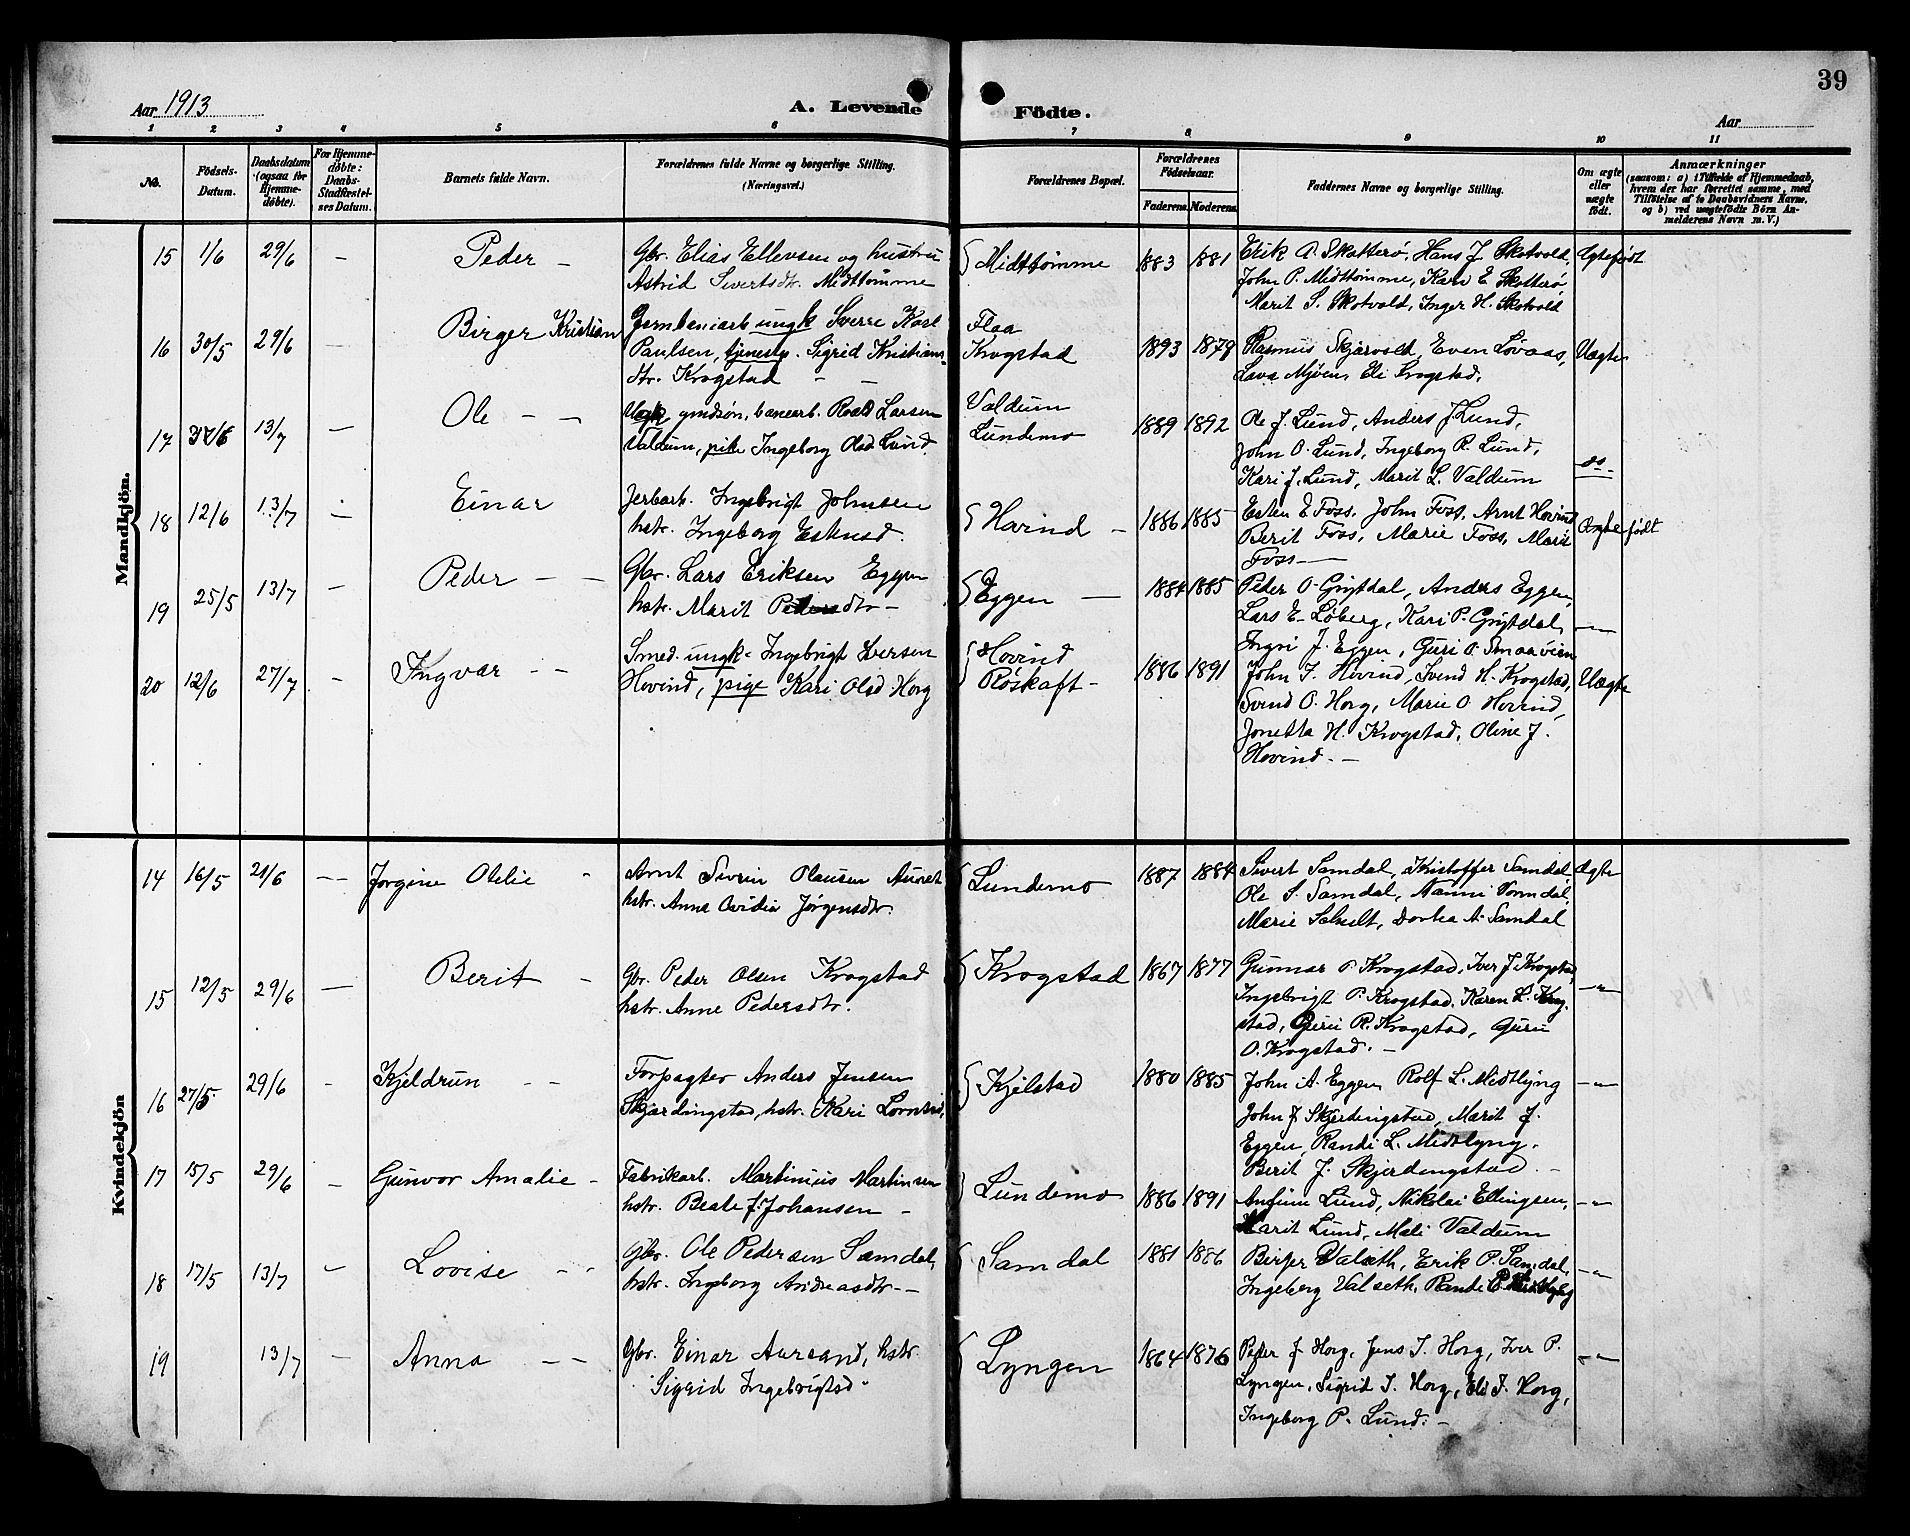 39
Aar 1913
A. Levende Födte.
Aar
1 2 3 4 5 6 7 8 9 10 11
No.
Födsels-Datum.
Daabsdatum (ogsaa for Hjemmedöbte).
For Hjemmedöbte: Daabs-Stadfæstelses Datum.
Barnets fulde Navn.
Forældrenes fulde Navne og borgerlige Stilling. (Næringsvei.)
Forældrenes Bopæl.
Forældrenes Födselsaar.
Faderens. Moderens.
Faddernes Navne og borgerlige Stilling.
Om ægte eller uægte födt.
Anmærkninger
(saasom: a) i Tilfælde af Hjemmedaab, hvem der har forrettet samme, med Tilföielse af to Daabsvidners Navne. og b) ved uægtefödte Börn Anmelderens Navn m. V.)
Mandkjön.
15 1/6 29/6 – Peder –
Gbr. Elias Ellevsen og hustru
Astrid Sivertsdtr. Midttømme
Midttømme 1883 1881
Erik A. Skotterø, Hans J. Skotvold,
John P. Midttømme, Kari E. Skotterø
Marit S. Skotvold, Inger H. Skotvold
Ægtefødt
16 30/5 29/6 – Birger Kristian
Jernbanearb ungk Sverre Karl
Paulsen, tjenestp. Sigrid Kristians-
dtr. Krogstad – –
Flaa
Krogstad 1893 1879
Rasmus Skjærvold, Even Løvaas,
Lava Mjøen, Eli Krogstad.
Uægte
17 13/7 – Ole – –
Ungk, gmdsøn, banearb. Roald Larsen
Valdum, pike Ingeborg Olsd Lund.
Valdum
Lundemo 1889 1892
Ole J. Lund, Anders J. Lund,
John O. Lund, Ingeborg R. Lund,
Kari J. Lund, Marit L. Valdum
do
18 12/6 13/7 – Einar
Jerbarb. Ingebrigt Johnsen
hstr. Ingeborg Estensd.
Havind – 1886 1885
Esten E Foss, John Foss, Arnt Hovind
Berit Foss, Marie Foss, Marit
Foss –
Ægtefødt
19 25/5 13/7 – Peder – –
Gbr. Lars Eriksen Eggen
hstr. Marit Pedersdtr –
Eggen – 1884 1885
Peder O. Grytdal, Anders Eggen,
Lars E. Løberg, Kari P. Grytdal,
Ingri J. Eggen, Guri O. Smaavoien
–"–
20 12/6 27/7 – Ingvar – –
Smed. ungk. Ingebrigt Iversen
Hovind, pige Kari Olsd Horg
Hovind
Røskaft – 1886 1891
John I. Hovind, Svend H. Krogstad,
Svend O. Horg, Marie O. Hovind,
Jonetta H. Krogstad, Oline J.
Hovind. –
Uægte
Kvindekjön
14 16/5 21/6 – Jorgine Otelie –
Arnt Sivrin Olausen Aunet
hstr. Anna Ovidia Jørgensdtr.
Lundemo 1887 1884
Sivert Samdal, Kristoffer Samdal
Ole S. Samdal, Nanni Vormdal,
Marie Schult, Dortea A. Samdal
Ægte
15 12/5 29/6 – Berit –
Gbr. Peder Olsen Krogstad
hstr. Anne Pedersdtr.
Krogstad 1867 1877
Gunnar P Krogstad, Iver J. Krogstad,
Ingebrigt P. Krogstad. Karen L. Krog-
stad, Guri R. Krogstad, Guru
O. Krogstad. –
–"–
16 27/5 29/6 – Kjeldrun – –
Forpagter Anders Jensen
Skjerdingstad, hstr. Kari Lorntsd,
Kjelstad 1880 1885
John A. Eggen, Rolf L. Midtlyng
John J. Skjerdingstad, Marit J.
Eggen, Randi L. Midtlyng,
Berit J. Skjerdingstad –
–"–
17 15/5 29/6 – Gunvor Amalie –
Fabrikarb. Martinius Martinsen
hstr. Beate J. Johansen –
Lundemo 1886 1891
Anfinn Lund, Nikolai Ellingsen,
Marit Lund, Mali Valdum
–"–
18 17/5 13/7 – Lovise – –
Gbr. Ole Pedersen Samdal,
hstr. Ingeborg Andreasdtr. –
Samdal 1881 1886
Birger Valseth, Erik P. Samdal,
Ingeborg Valseth, Randi
–"–
19 13/7 – Anna – –
Gbr. Einar Aursand, hstr.
Sigrid Ingebrigtsd
Lyngen 1864 1876
Peder J Horg, Jens I. Horg, Iver P.
Lyngen, Sigrid I. Horg, Eli I. Horg,
Ingeborg P. Lund. –
–"–